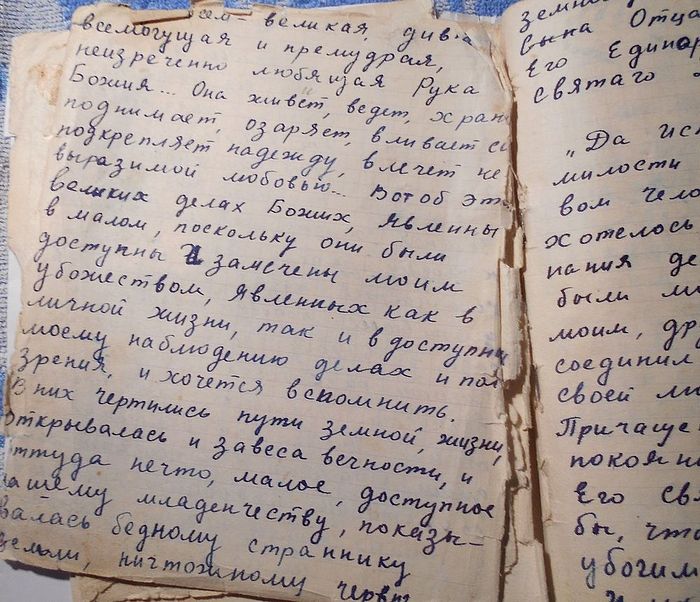 сем великая, дивная
всемогущая и премудрая,
неизреченно любящая Рука
Божия... Она живет, ведет, храни
поднимает, озаряет, вливает си
подкрепляет надежду, влечет не
выразимой любовью... Вот об эти
великих делах Божиих, явленны
в малом, поскольку они были
доступны и замечены моим
убожеством, явленных как в
личной жизни, так и в доступны
моему наблюдению делах и пол
зрения, и хочется вспомнить.
В них чертились пути земной, жизни,
открывалась и завеса вечности, и
оттуда нечто, малое, доступное
нашему младенчеству, показы-
валась бедному страннику
земли, ничтожному червю
земно
Сына Отца
Его Единор
святаго
"Да ис
милости
вом чело
хотелось
пания де
были м
моим, др
соединил
своей ли
Причаще
покоян
Его св
бы, что
убогим